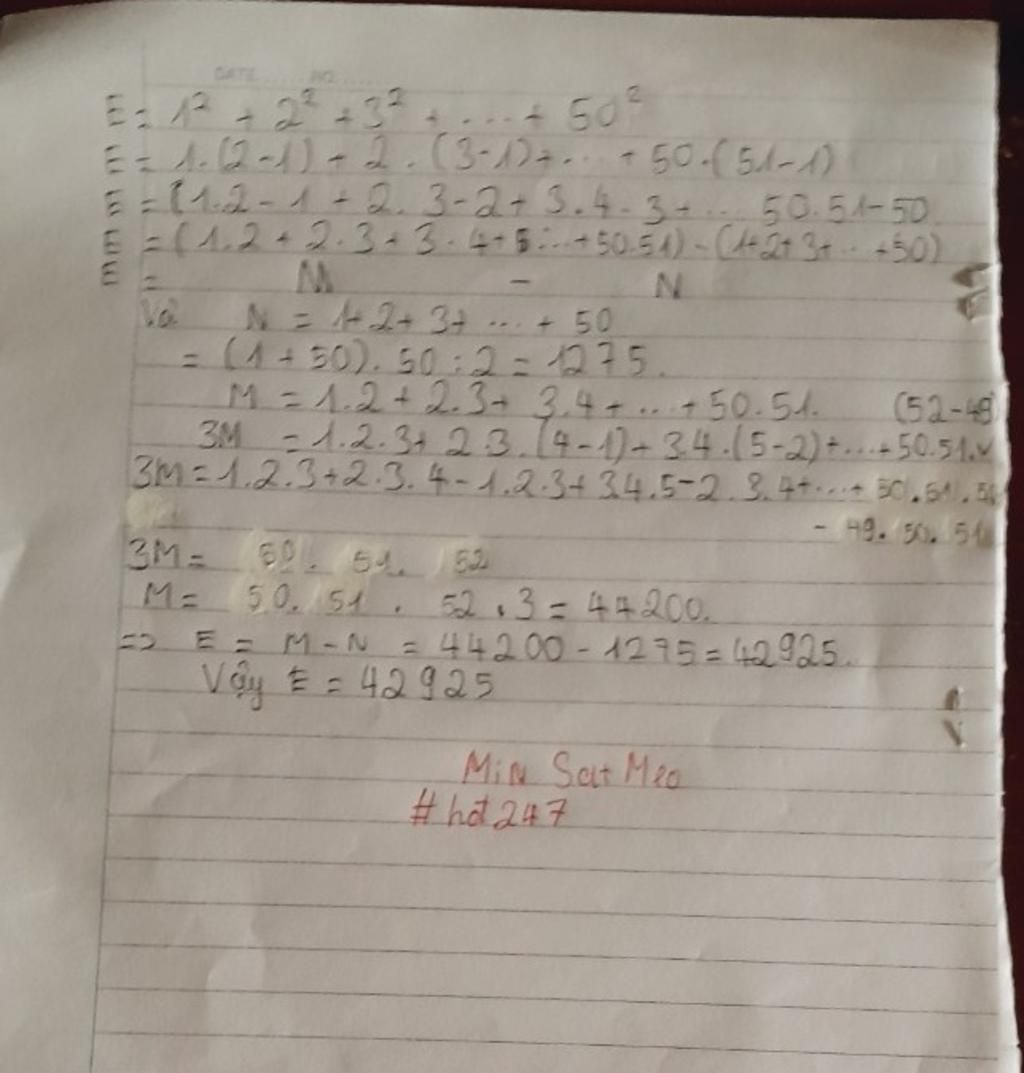 DATE ..... NO .....
E = 1² + 2² + 3² + ... + 50²
E = 1.(2-1) + 2.(3-1) + ... + 50.(51-1)
E = (1.2 - 1 + 2.3 - 2 + 3.4 - 3 + ... 50.51 - 50
E = (1.2 + 2.3 + 3.4 + 5 ... + 50.51) - (1+2+3+ ... +50)
E = M - N
Và N = 1+2+3+ ... + 50
= (1 + 50).50 : 2 = 1275.
M = 1.2 + 2.3 + 3.4 + ... + 50.51. (52-49)
3M = 1.2.3 + 2.3.(4-1) + 3.4.(5-2) + ... + 50.51.v
3M = 1.2.3 + 2.3.4 - 1.2.3 + 3.4.5 - 2.3.4 + ... + 50.51.
- 49.50.51
3M = 50. 51. 52
M = 50. 51 . 52 . 3 = 44200.
=> E = M - N = 44200 - 1275 = 42925.
Vậy E = 42925
Min Sat Meo
#hd247